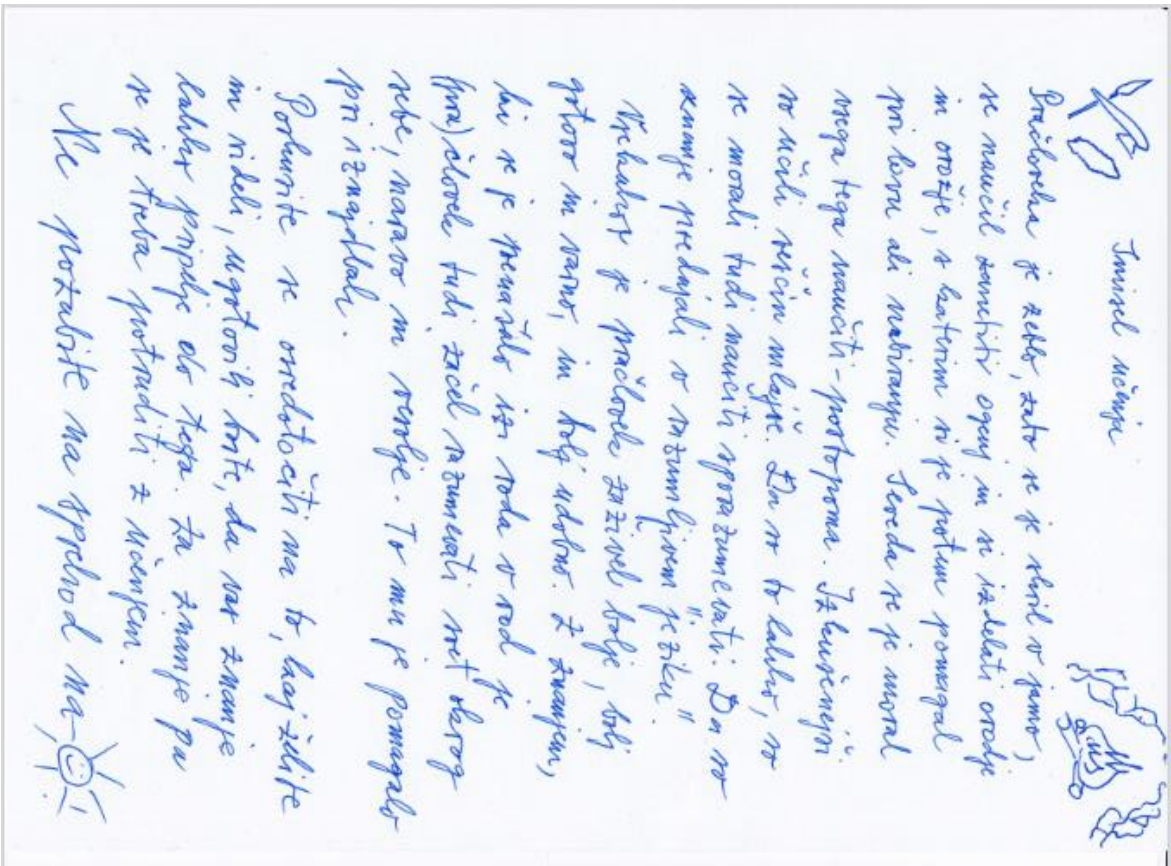 Smisel učenja
Pračloveka je zeblo, zato se je skril v jamo,
se naučil zanetiti ogenj in si izdelati orodje
in orožje, s katerim si je potem pomagal
pri lovu ali nabiranju. Seveda se je moral
vsega tega naučiti - postopoma. Izkušenejši
so učili veščin mlajše. Da so to lahko, so
se morali tudi naučiti sporazumevati. Da so
znanje predajali v razumljivem "jeziku".
Vsekakor je pračlovek zaživel bolje, bolj
gotovo in varno, in bolj udobno. Z znanjem,
ki se je prenašalo iz roda v rod je
(pra)človek tudi začel razumeti svet okrog
sebe, naravo in vesolje. To mu je pomagalo
pri iznajdbah.
Poskusite se osredotočiti na to, kaj želite
in videli, ugotovili boste, da vas znanje
lahko pripelje do tega. Za znanje pa
se je treba potruditi z učenjem.
Ne pozabite na sprehod na